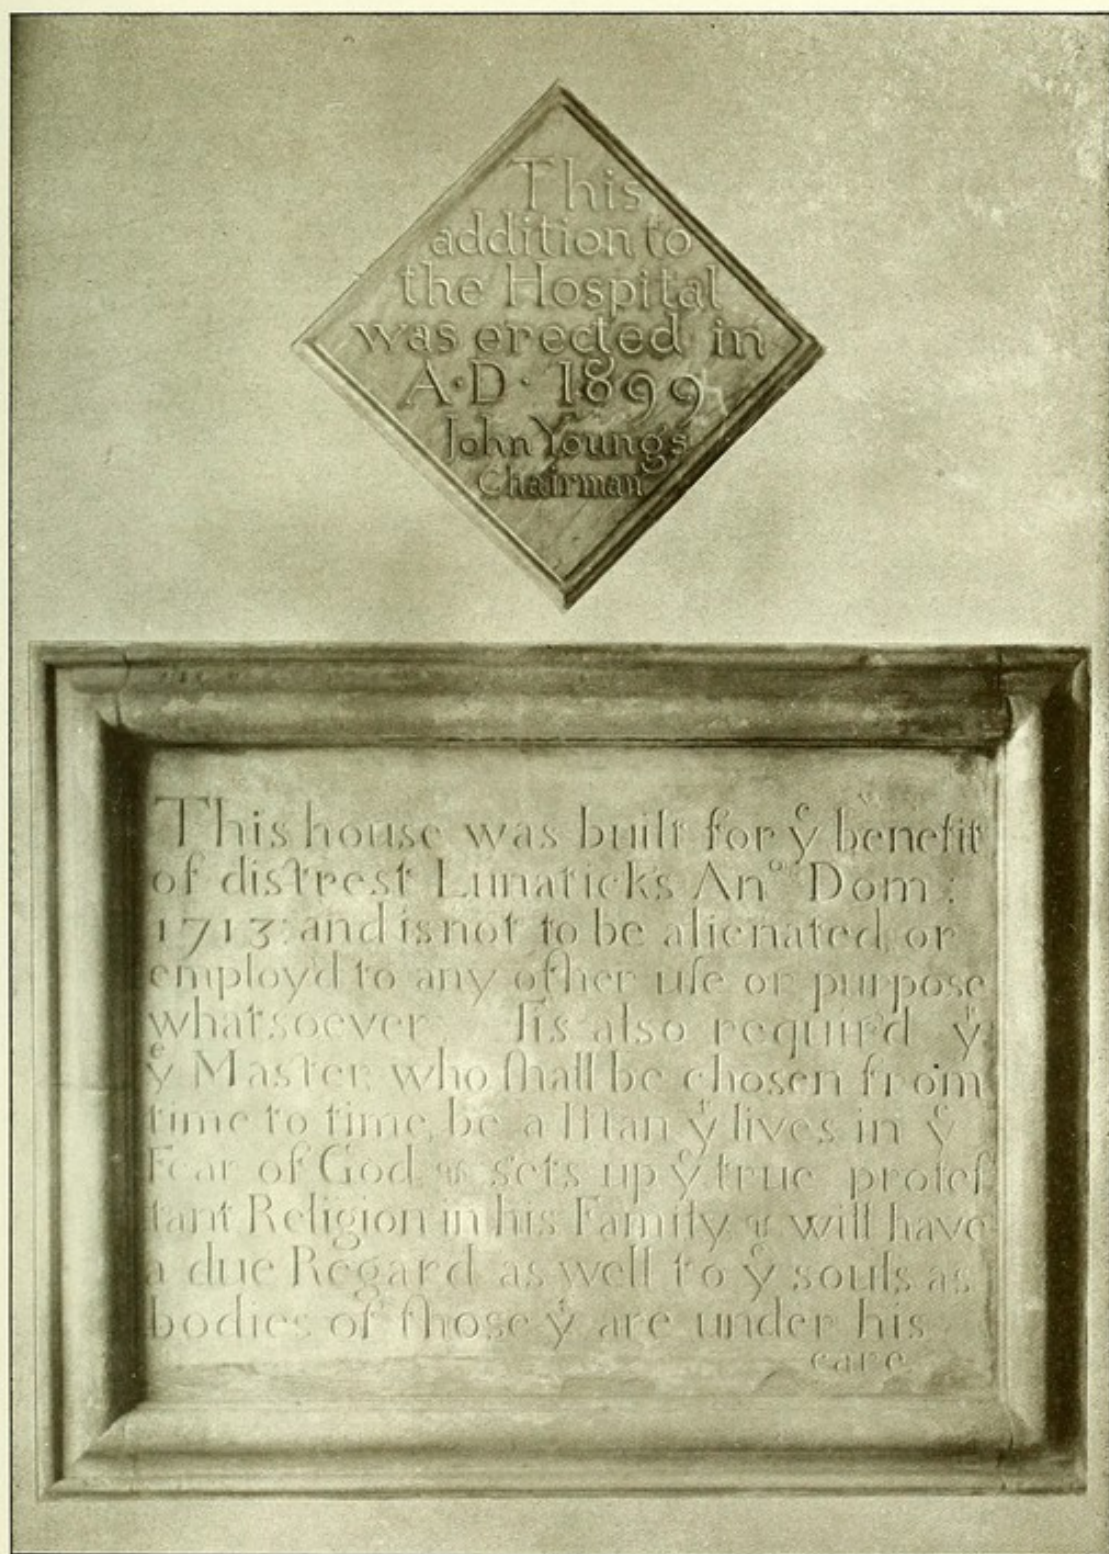 This
addition to
the Hospital
was erected in
A·D· 1899
John Youngs
Chairman
This house was built for yᵉ benefit
of distrest Lunaticks Anᵒ Dom:
1713; and is not to be alienated, or
employ'd to any other uſe or purpose
whatsoever Tis also requir'd yᵗ
yᵉ Master, who ſhall be chosen from
time to time, be a Man yᵗ lives in yᵉ
Fear of God, & sets up yᵉ true proteſ
tant Religion in his Family, & will have
a due Regard as well to yᵉ souls as
bodies of those yᵗ are under his
care